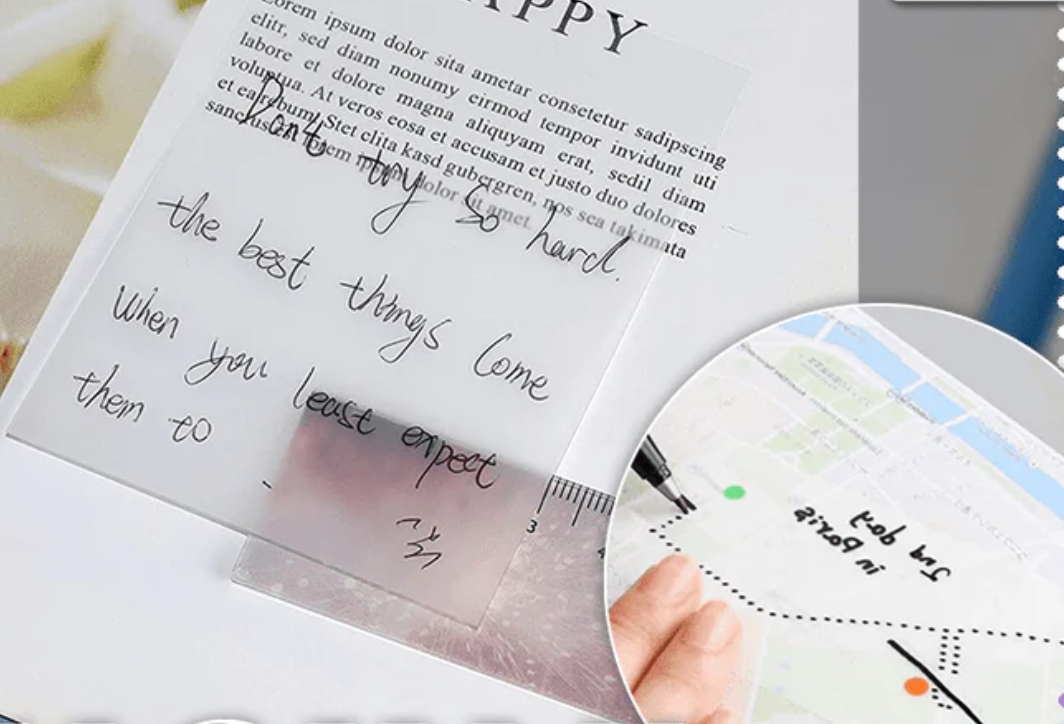 APPY
Lorem ipsum dolor sita ametar consetetur sadipscing
elitr, sed diam nonumy eirmod tempor invidunt uti
labore et dolore magna aliquyam erat, sedil diam
voluptua. At veros eosa et accusam et justo duo dolores
et ea rebum. Stet clita kasd gubergren, nos sea takimata
sanctus est lorem ipsum dolor sit amet.
Don't try So hard.
the best things Come
When you least expect
them to
3
in paris